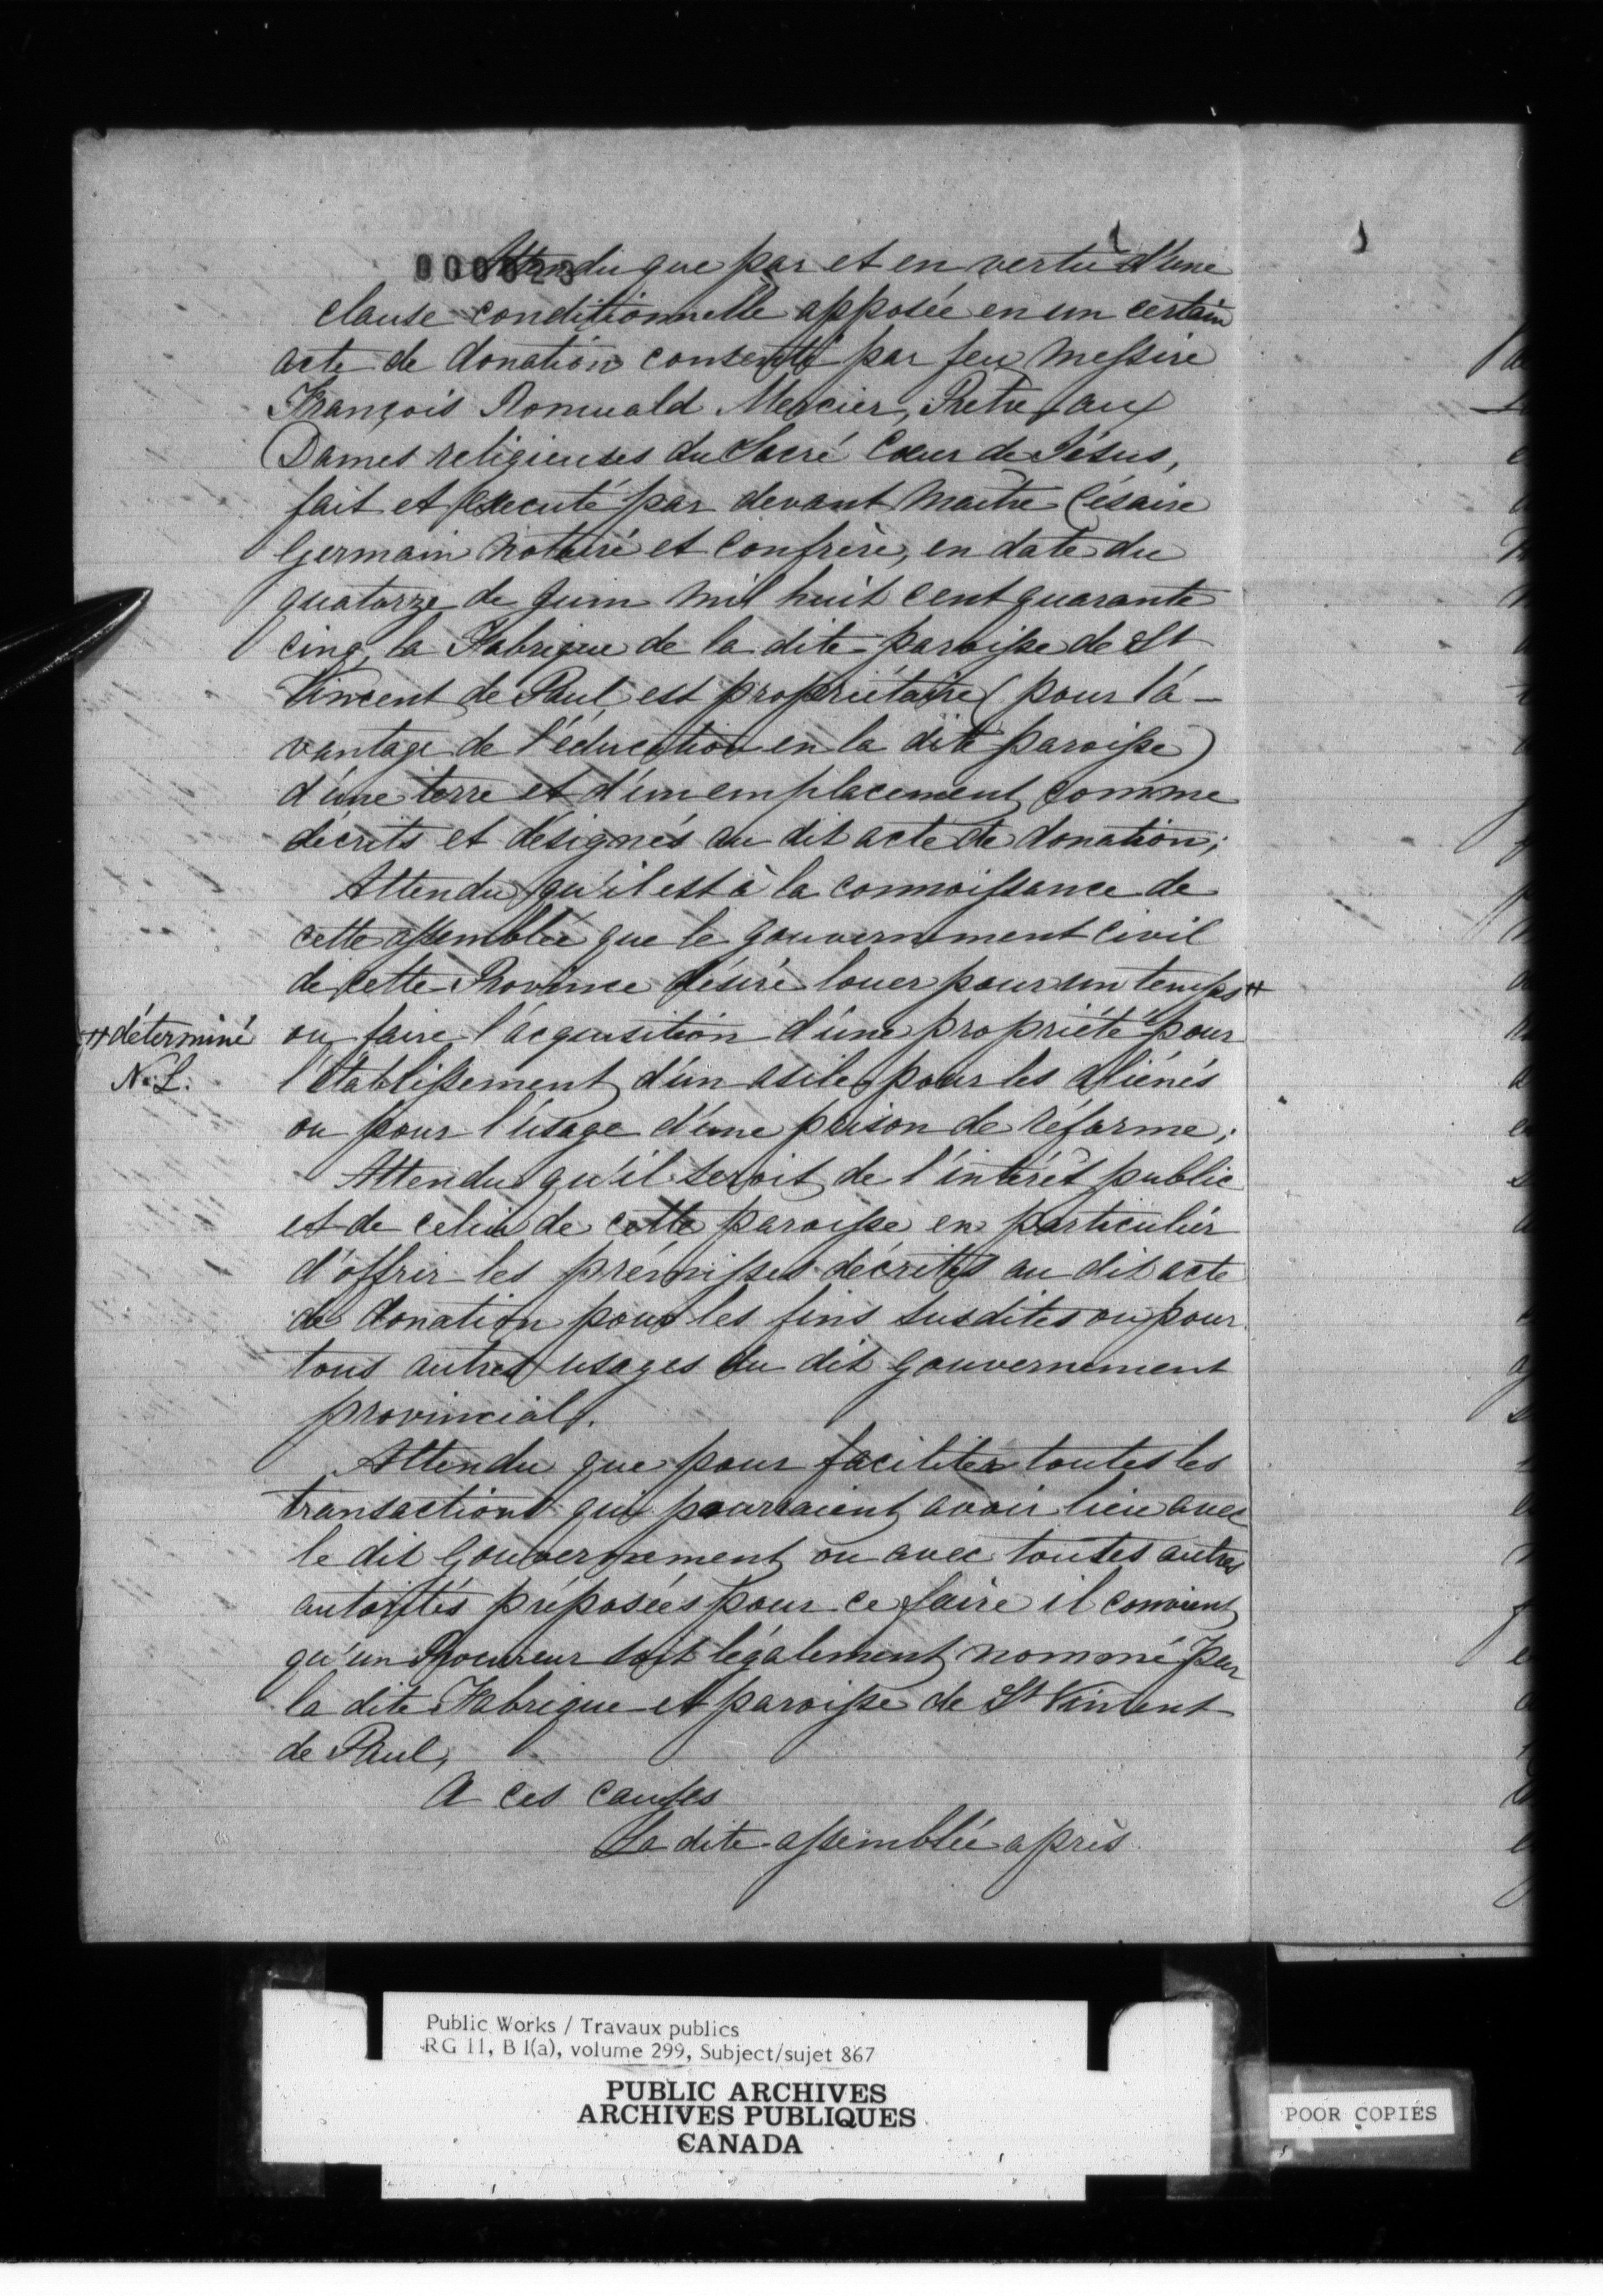 000623
Attendu que par et en vertu d'une
clause conditionnelle apposée en un certain
acte de donation consenti par feu Messire
François Romuald Mercier, Prêtre, aux
Dames religieuses du Sacré Cœur de Jésus,
fait et executé par devant Maitre Césaire
Germain notaire et Confrère, en date du
quatorze de Juin mil huit cent quarante
cinq, la Fabrique de la dite paroisse de St
Vincent de Paul, est propriétaire (pour l'a-
vantage de l'éducation en la dite paroisse)
d'une terre et d'un emplacement, comme
décrits et désignés au dit acte de donation;
Attendu qu'il est à la connoissance de
cette assemblée que le gouvernement civil
de cette Province désire louer pour un temps #
# déterminé
N. L.
ou faire l'acquisition d'une propriété pour
l'établissement d'un asile pour les aliénés
ou pour l'usage d'une prison de réforme;
Attendu qu'il seroit de l'intérêt public
et de celui de cette paroisse en particulier
d'offrir les prémisses décrites au dit acte
de donation pour les fins susdites ou pour
tous autres usages du dit gouvernement
provincial.
Attendu que pour faciliter toutes les
transactions qui pourraient avoir lieu avec
le dit Gouvernement ou avec toutes autres
autorités préposées pour ce faire il convient
qu'un Procureur soit légalement nommé par
la dite Fabrique et paroisse de St Vincent
de Paul,
A ces causes
La dite assemblée après
Public Works / Travaux publics
RG 11, B 1(a), volume 299, Subject/sujet 867
PUBLIC ARCHIVES
ARCHIVES PUBLIQUES
CANADA
POOR COPIES